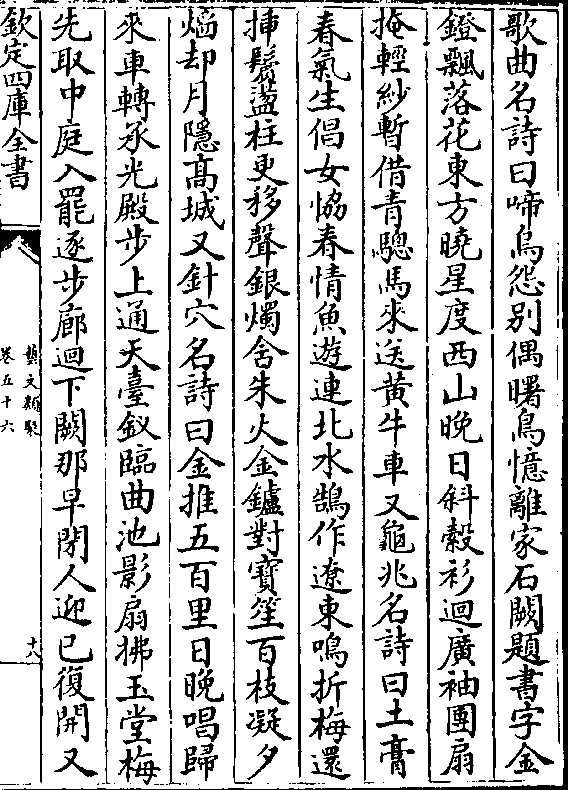 歌曲名詩曰啼烏怨别偶曙鳥憶離家石闕題書字金
鐙飄落花東方曉星度西山晚日斜縠衫迴廣袖團扇
掩輕紗暫借青驄馬來送黄牛車又龜兆名詩曰土膏
春氣生倡女協春情魚遊連北水鵠作遼東鳴折梅還
挿鬢盪柱更移聲銀燭含朱火金鑪對寳笙百枝凝夕
熖却月隱髙城又針穴名詩曰金推五百里日晚唱歸
來車轉承光殿步上通天臺釵臨曲池影扇拂玉堂梅
先取中庭入罷逐步廊迴下闕那早閉人迎已復開又
欽定四庫全書
藝文類聚
卷五十六
十八